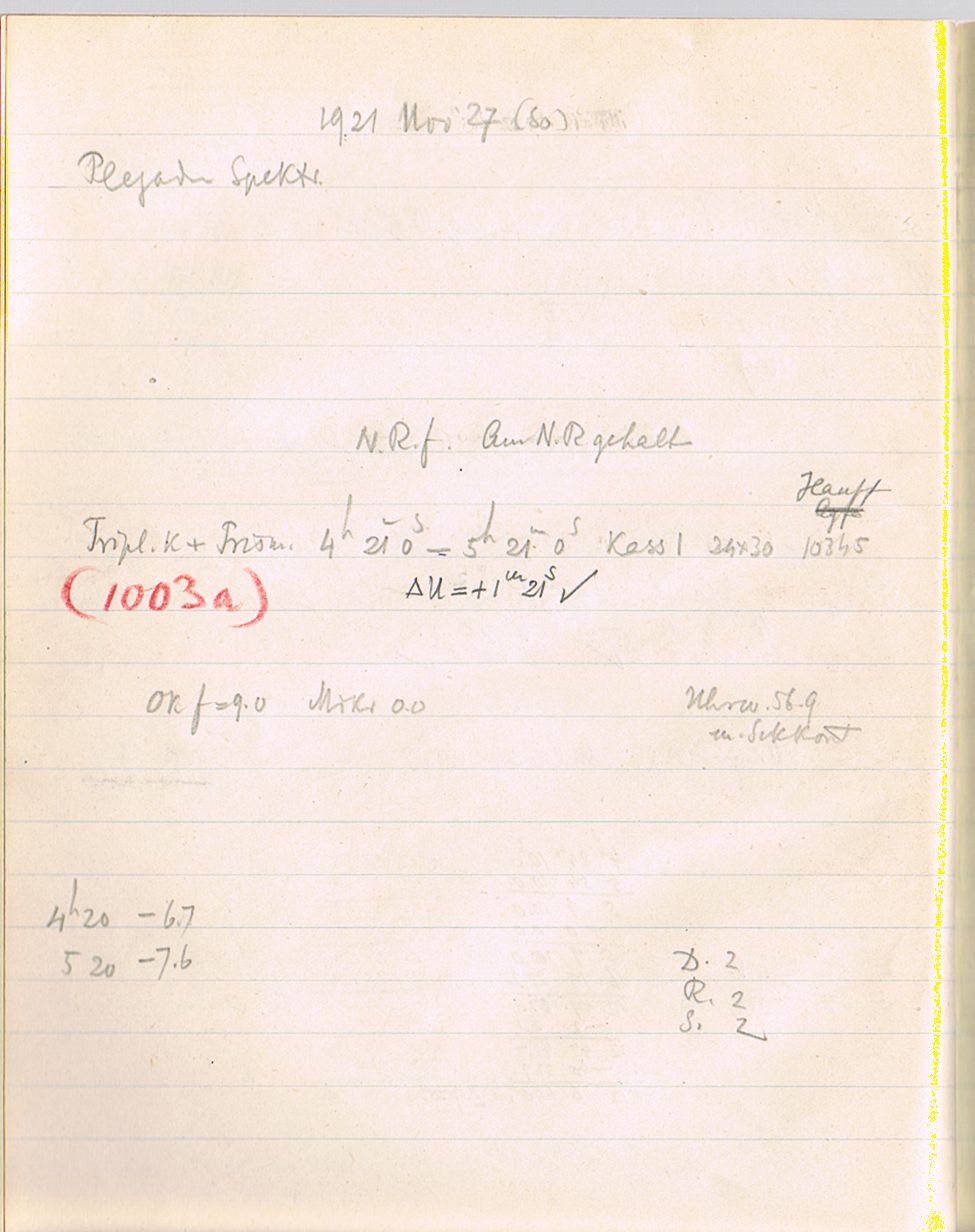 1921 Nov 27 (So)
Plejaden Spektr.
N.R.f. Am N.R gehalt
Hauff
Tripl. K + Prism. 4h 21m 0s – 5h 21m 0s Kass I 24x30 10345
(1003a)
ΔU = +1m 21s ✓
OK f = 9.0 Mikr 0.0 Uhrw. 56.9
m. Sekkont
4h 20 – 6.7
5 20 – 7.6
D. 2
R. 2
S. 2